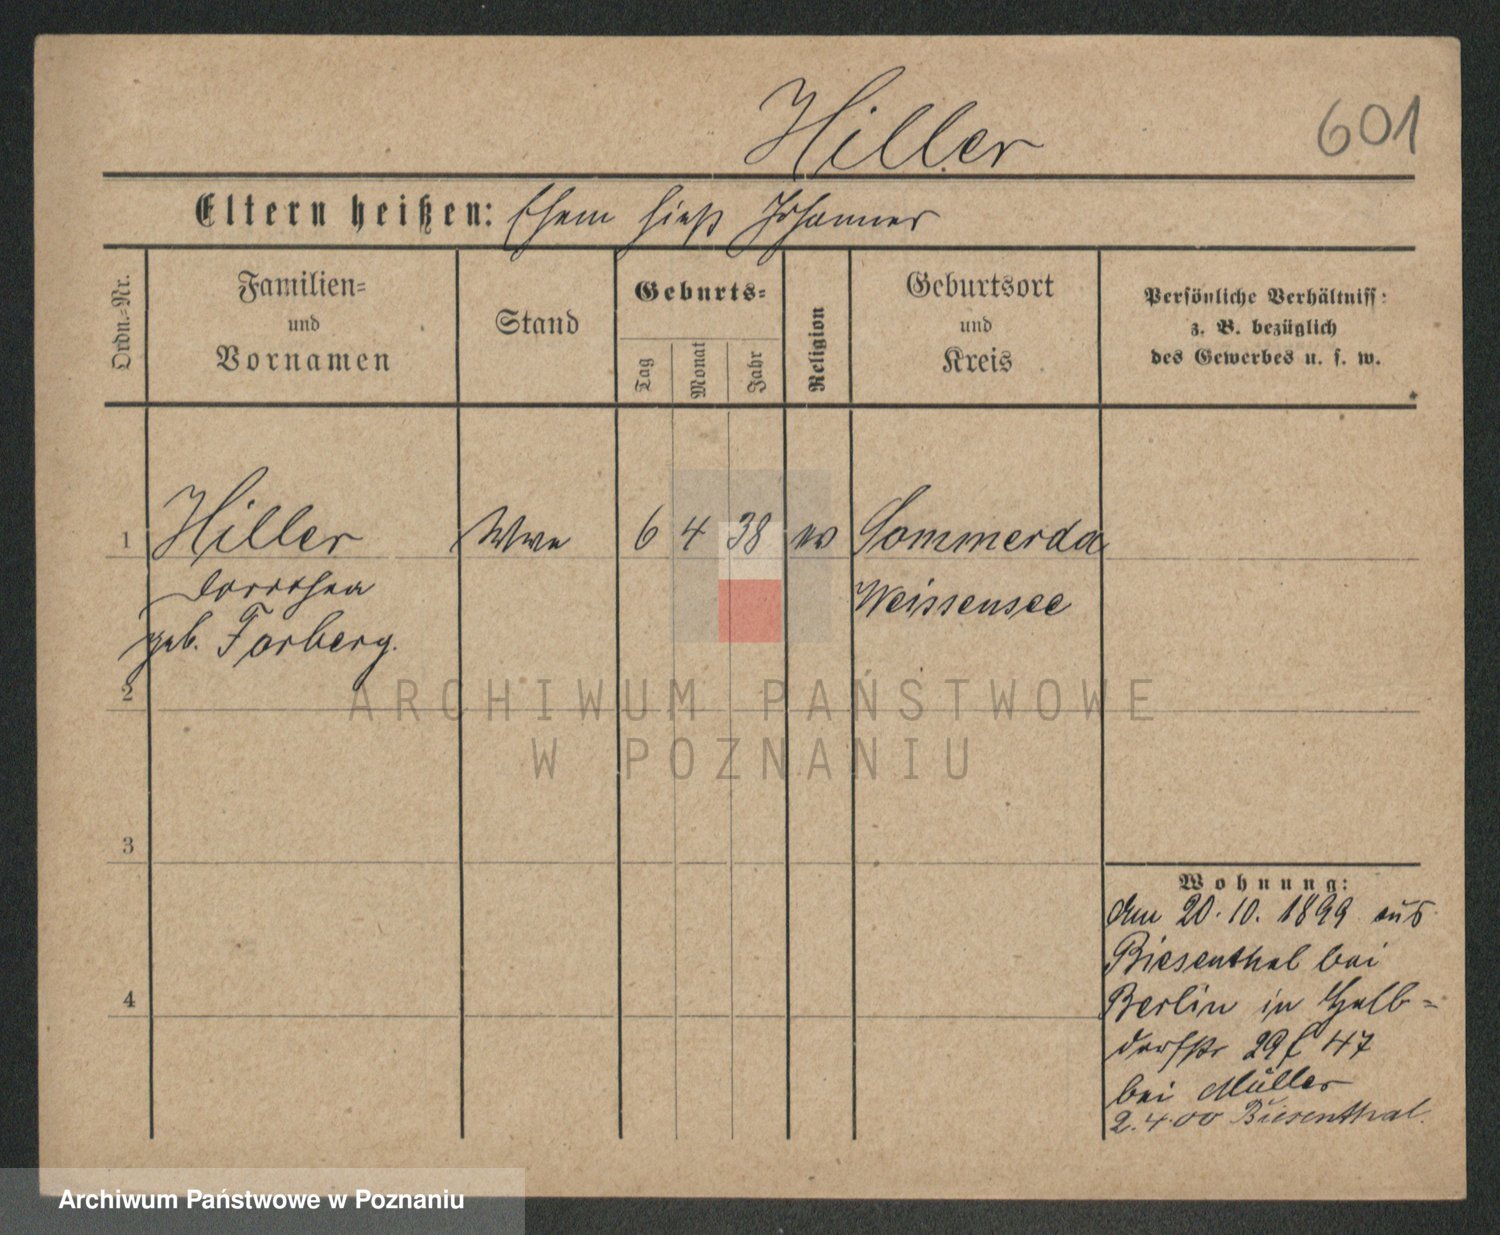 Hiller
601
Eltern heißen: Ehem hieß Johannes
Ordn.-Nr.
Familien-
und
Vornamen
Stand
Geburts-
Tag
Monat
Jahr
Religion
Geburtsort
und
Kreis
Persönliche Verhältniss:
z. B. bezüglich
des Gewerbes u. s. w.
1 Hiller Wwe 6 4 38 ev Sommerda
Dorothea Weissensee
geb. Forberg.
2
ARCHIWUM PAŃSTWOWE
W POZNANIU
3
4
Wohnung:
Am 20.10.1899 aus
Biesenthal bei
Berlin in Halb-
dorfstr 29 f 47
bei Müller
2.4.00 Biesenthal.
Archiwum Państwowe w Poznaniu